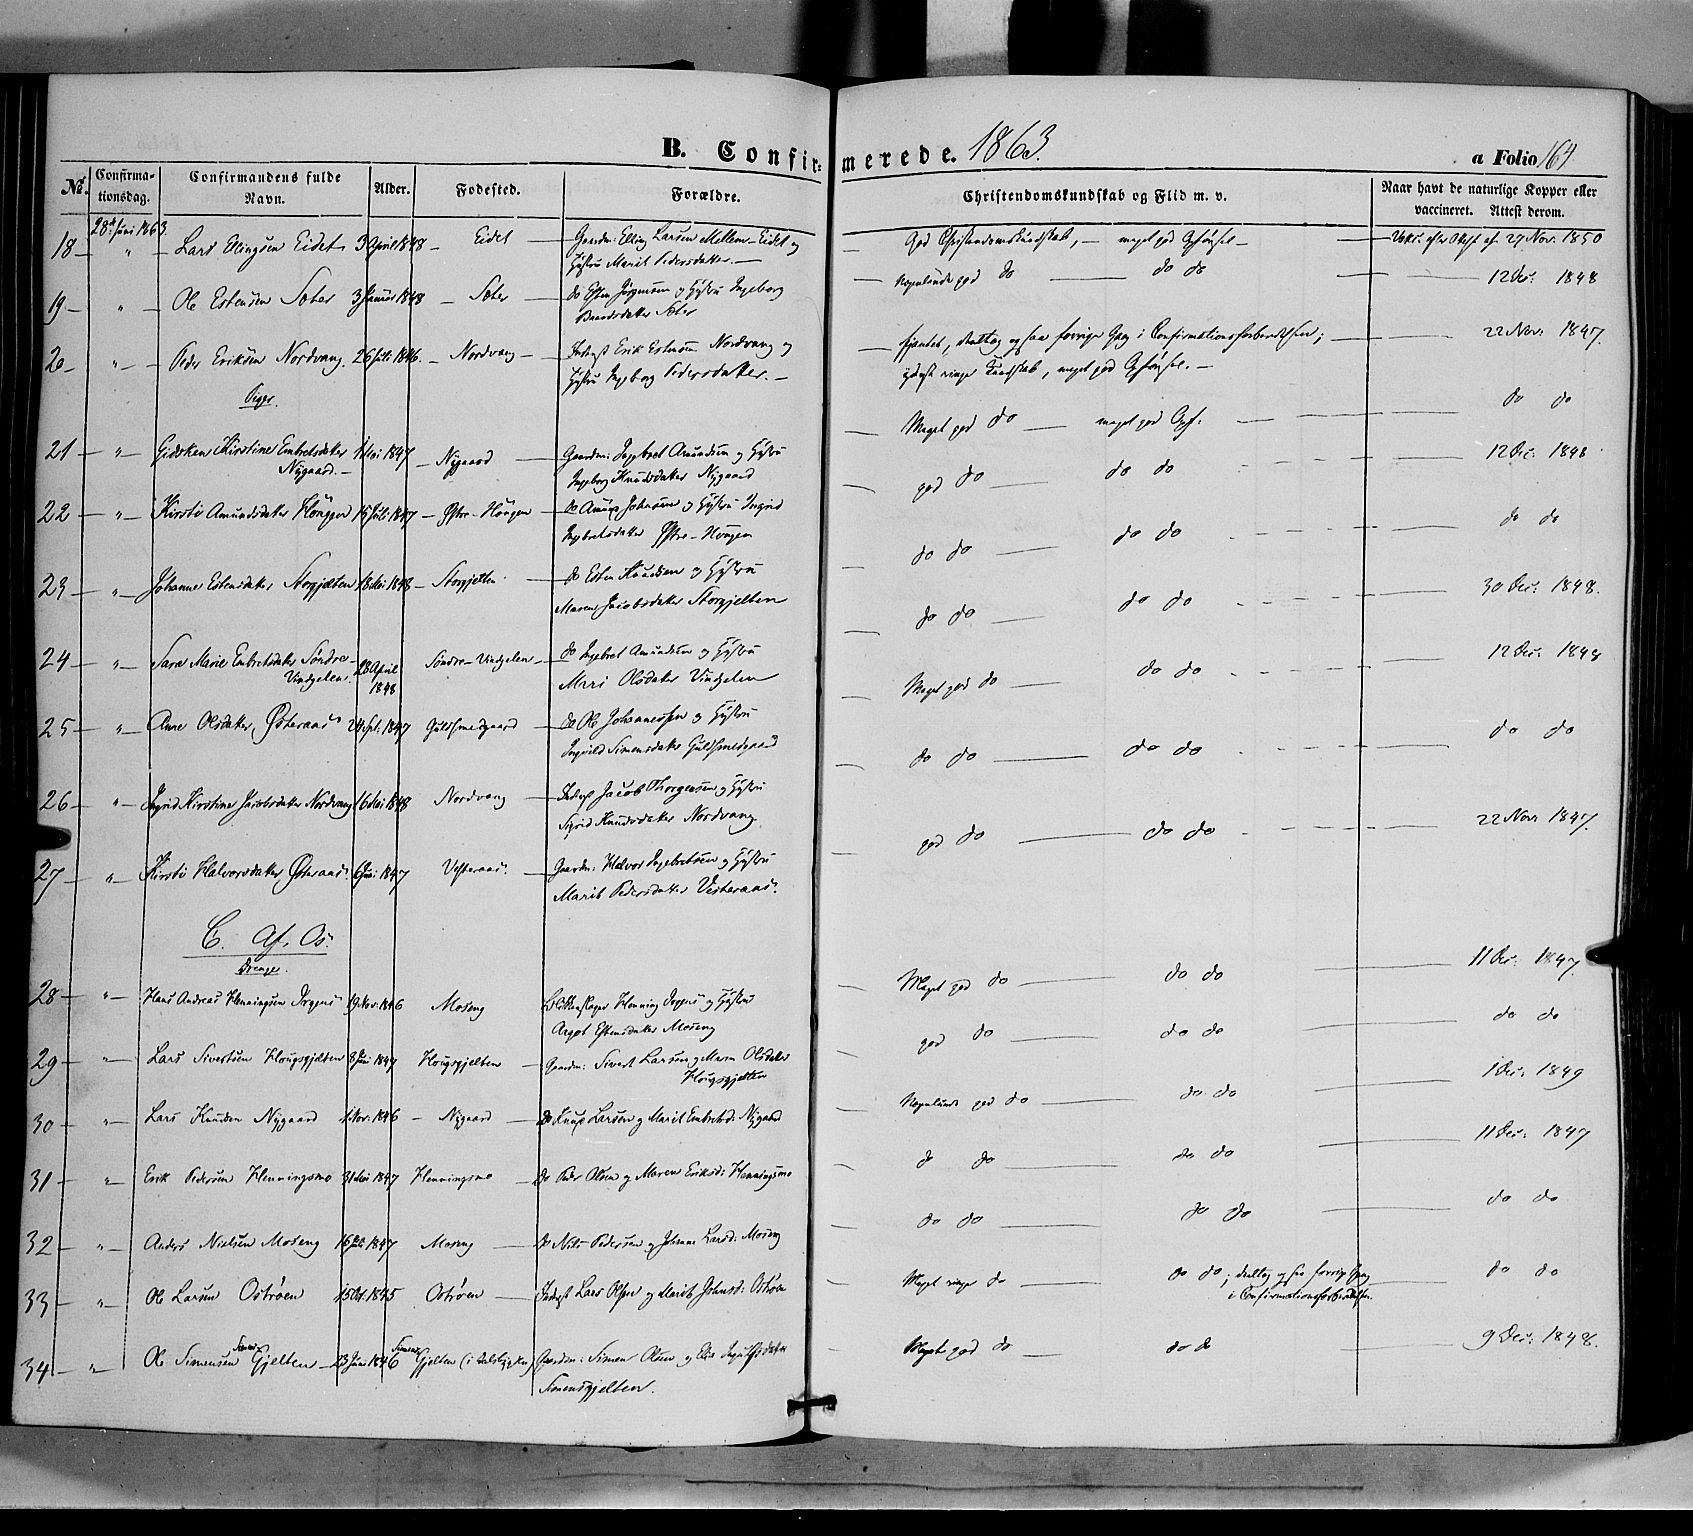 B. Confir-
merede. 1863.
a Folio 164
No.
Confirma-
tionsdag.
Confirmandens fulde
Navn.
Alder.
Fødested.
Forældre.
Christendomskundskab og Flid m. v.
Naar havt de naturlige Kopper eller
vaccineret. Attest derom.
28de Juni 1863.
18 — " — Lars Ellingsen Eidet 3 April 1848 — Eidet — Gaardm: Elling Larsen Mellem-Eidet og
Hustru Marit Pedersdatter. —
God Christendomskundskab, — meget god Opførsel — Vakc. efter Attest af 27 Nov. 1850
19 — " — Ole Estensen Sæter 3 Januar 1848 — Sæter — do Esten Jørgensen og Hustru Ingeborg
Sæter
Nogenlunde god do — do do — 12 Dec: 1848
20 — " — Peder Eriksen Nordvang. 26 Juli 1846. — Nordvang — Inderst Erik Estensen Nordvang og
Hustru Ingeborg Pedersdatter. —
deeltog ogsaa forrige Gang i Confirmationsforberedelsen;
yderst ringe Kundskab, meget god Opførsel. — 22 Nov: 1847.
Piger.
21 — " — Gidsken Kirstine Embretsdatter
Nygaard. — 1 Mai 1847 — Nygaard — Gaardm: Ingebret Amundsen og Hustru
Ingeborg Knudsdatter Nygaard
Meget god do — meget god Opf. — do do
22 — " — Kirsti Amundsdatter Hougen 15 Juli 1847 — Østre-Hougen — do Amund Johnsen og Hustru Ingrid
Ingebretsdatter Østre-Hougen
god do — do do — 12 Dec: 1848
23 — " — Johanne Estensdatter Storgjelten 18 Mai 1848 — Storgjelten — do Esten Knudsen og Hustru
Maren Jacobsdatter Storgjelten
do do — do do — do do
24 — " — Sara Marie Embretsdatter Søndre-
Vindgelen. 28 April
1848 Søndre-Vindgelen — do Ingebret Amundsen og Hustru
Mari Olsdatter Vindgelen
do do — do do — 30 Dec: 1848.
25 — " — Ane Olsdatter Østeraas 24 Sept: 1847 Guldsmedgaard — do Ole Johannessen og Hustru
Ingeild Simensdatter Guldsmedgaard
Meget god do — do do — 12 Dec: 1848
26 — " — Ingrid Kirstine Jacobsdatter Nordvang 16 Mai 1848 Nordvang — Inderst Jacob Thorgersen og Hustru
Sigrid Knudsdatter Nordvang.
do do — do do — do do
27 — " — Kirsti Halvorsdatter Østeraas. 6 Juni 1847 Vesteraas. — Gaardm: Halvor Ingebretsen og Hustru
Marit Pedersdatter Vesteraas.
god do — do do — 22 Nov: 1847.
C. Af Os.
Drenge.
28 — " — Hans Andreas Henningsen Dryges 19 Nov. 1846 Moseng Henning Dryges og Hustru
Estensdatter Moseng
Meget god do — do do — 11 Dec: 1847.
29 — " — Lars Sivertsen Hougsgjelten 8 Juni 1847 Hougsgjelten — Gaardm: Sivert Larsen og Maren Olsdatter
Hougsgjelten
god do — do do — do do
30 — " — Lars Knudsen Nygaard 1 Nov: 1846 — Nygaard — do Knud Larsen og Marit Embretsd: Nygaard
Nogenlunde god do — do do — 1 Dec: 1849
31 — " — Erik Pedersen Henningsmo 31 Mai 1847 Henningsmo — do Peder Olsen og Maren Eriksd: Henningsmo
do do — do do — 11 Dec: 1847
32 — " — Anders Nielsen Moseng 16 Juli 1847 Moseng — do Nils Pedersen og Johanne Larsd: Moseng
do do — do do — do do
33 — " — Ole Larsen Osrøen 15 Oct. 1845 Osrøen — Inderst Lars Olsen og Marit Johnsd: Osrøen
Meget ringe do — do do; deeltog ogsaa forrige Gang
i Confirmationsforberedelsen. — do do
34 — " — Ole Simensen Simensgjelten — 23 Juni 1846 Simensgjelten (i Dalsbygden) Gaardm: Simen Olsen og
Simensgjelten.
Meget god do — do do — 9 Dec: 1848.